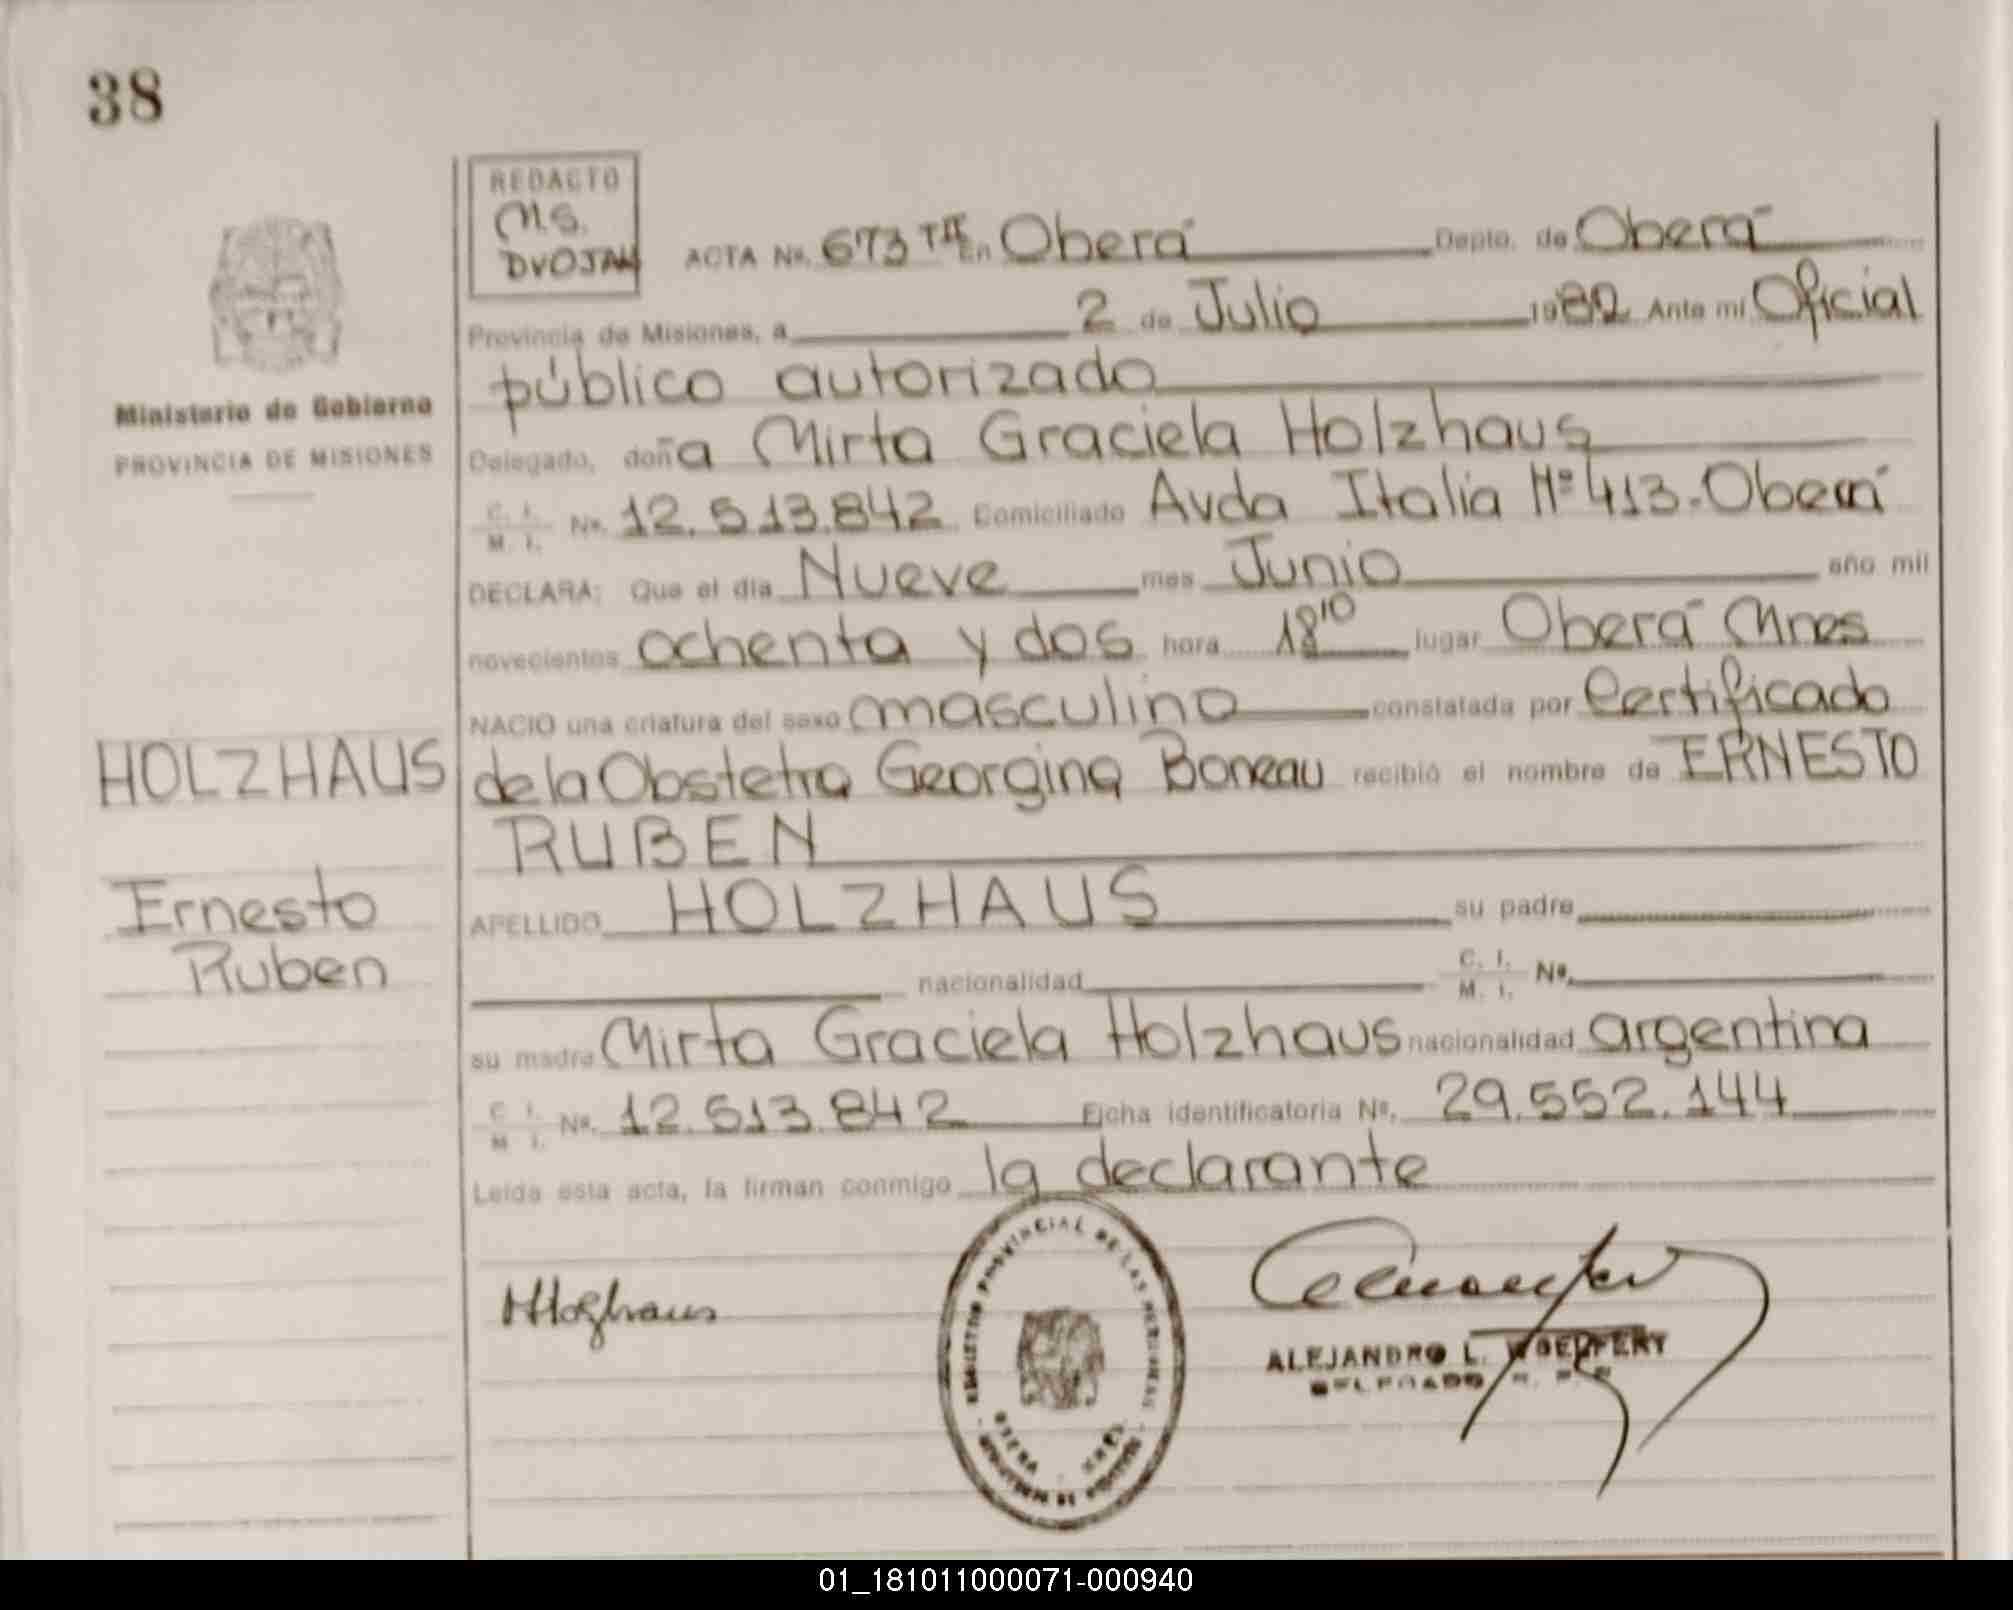 38
REDACTO
M.S.
DVOJAK
ACTA Nº. 673 TII En Oberá Depto. de Oberá
Provincia de Misiones, a 2 de Julio 1982 Ante mí Oficial
público autorizado
Ministerio de Gobierno
PROVINCIA DE MISIONES
Delegado, doña Mirta Graciela Holzhaus
C. I.
M. I. Nº. 12.513.842 Domiciliado Avda Italia Nº 413-Oberá
DECLARA: Que el día Nueve mes Junio año mil
novecientos ochenta y dos hora 18¹⁰ lugar Oberá Mnes
NACIO una criatura del sexo masculino constatada por Certificado
HOLZHAUS
de la Obstetra Georgina Boneau recibió el nombre de ERNESTO
RUBEN
Ernesto
Ruben
APELLIDO HOLZHAUS su padre
nacionalidad C. I.
M. I. Nº.
su madre Mirta Graciela Holzhaus nacionalidad argentina
C. I.
M. I. Nº. 12.513.842 Ficha identificatoria Nº. 29.552.144
Leída esta acta, la firman conmigo la declarante
MHolzhaus
REGISTRO PROVINCIAL DE LAS PERSONAS
OBERA MNES.
ALEJANDRO L.
DELEGADO R. P. P.
01_181011000071-000940